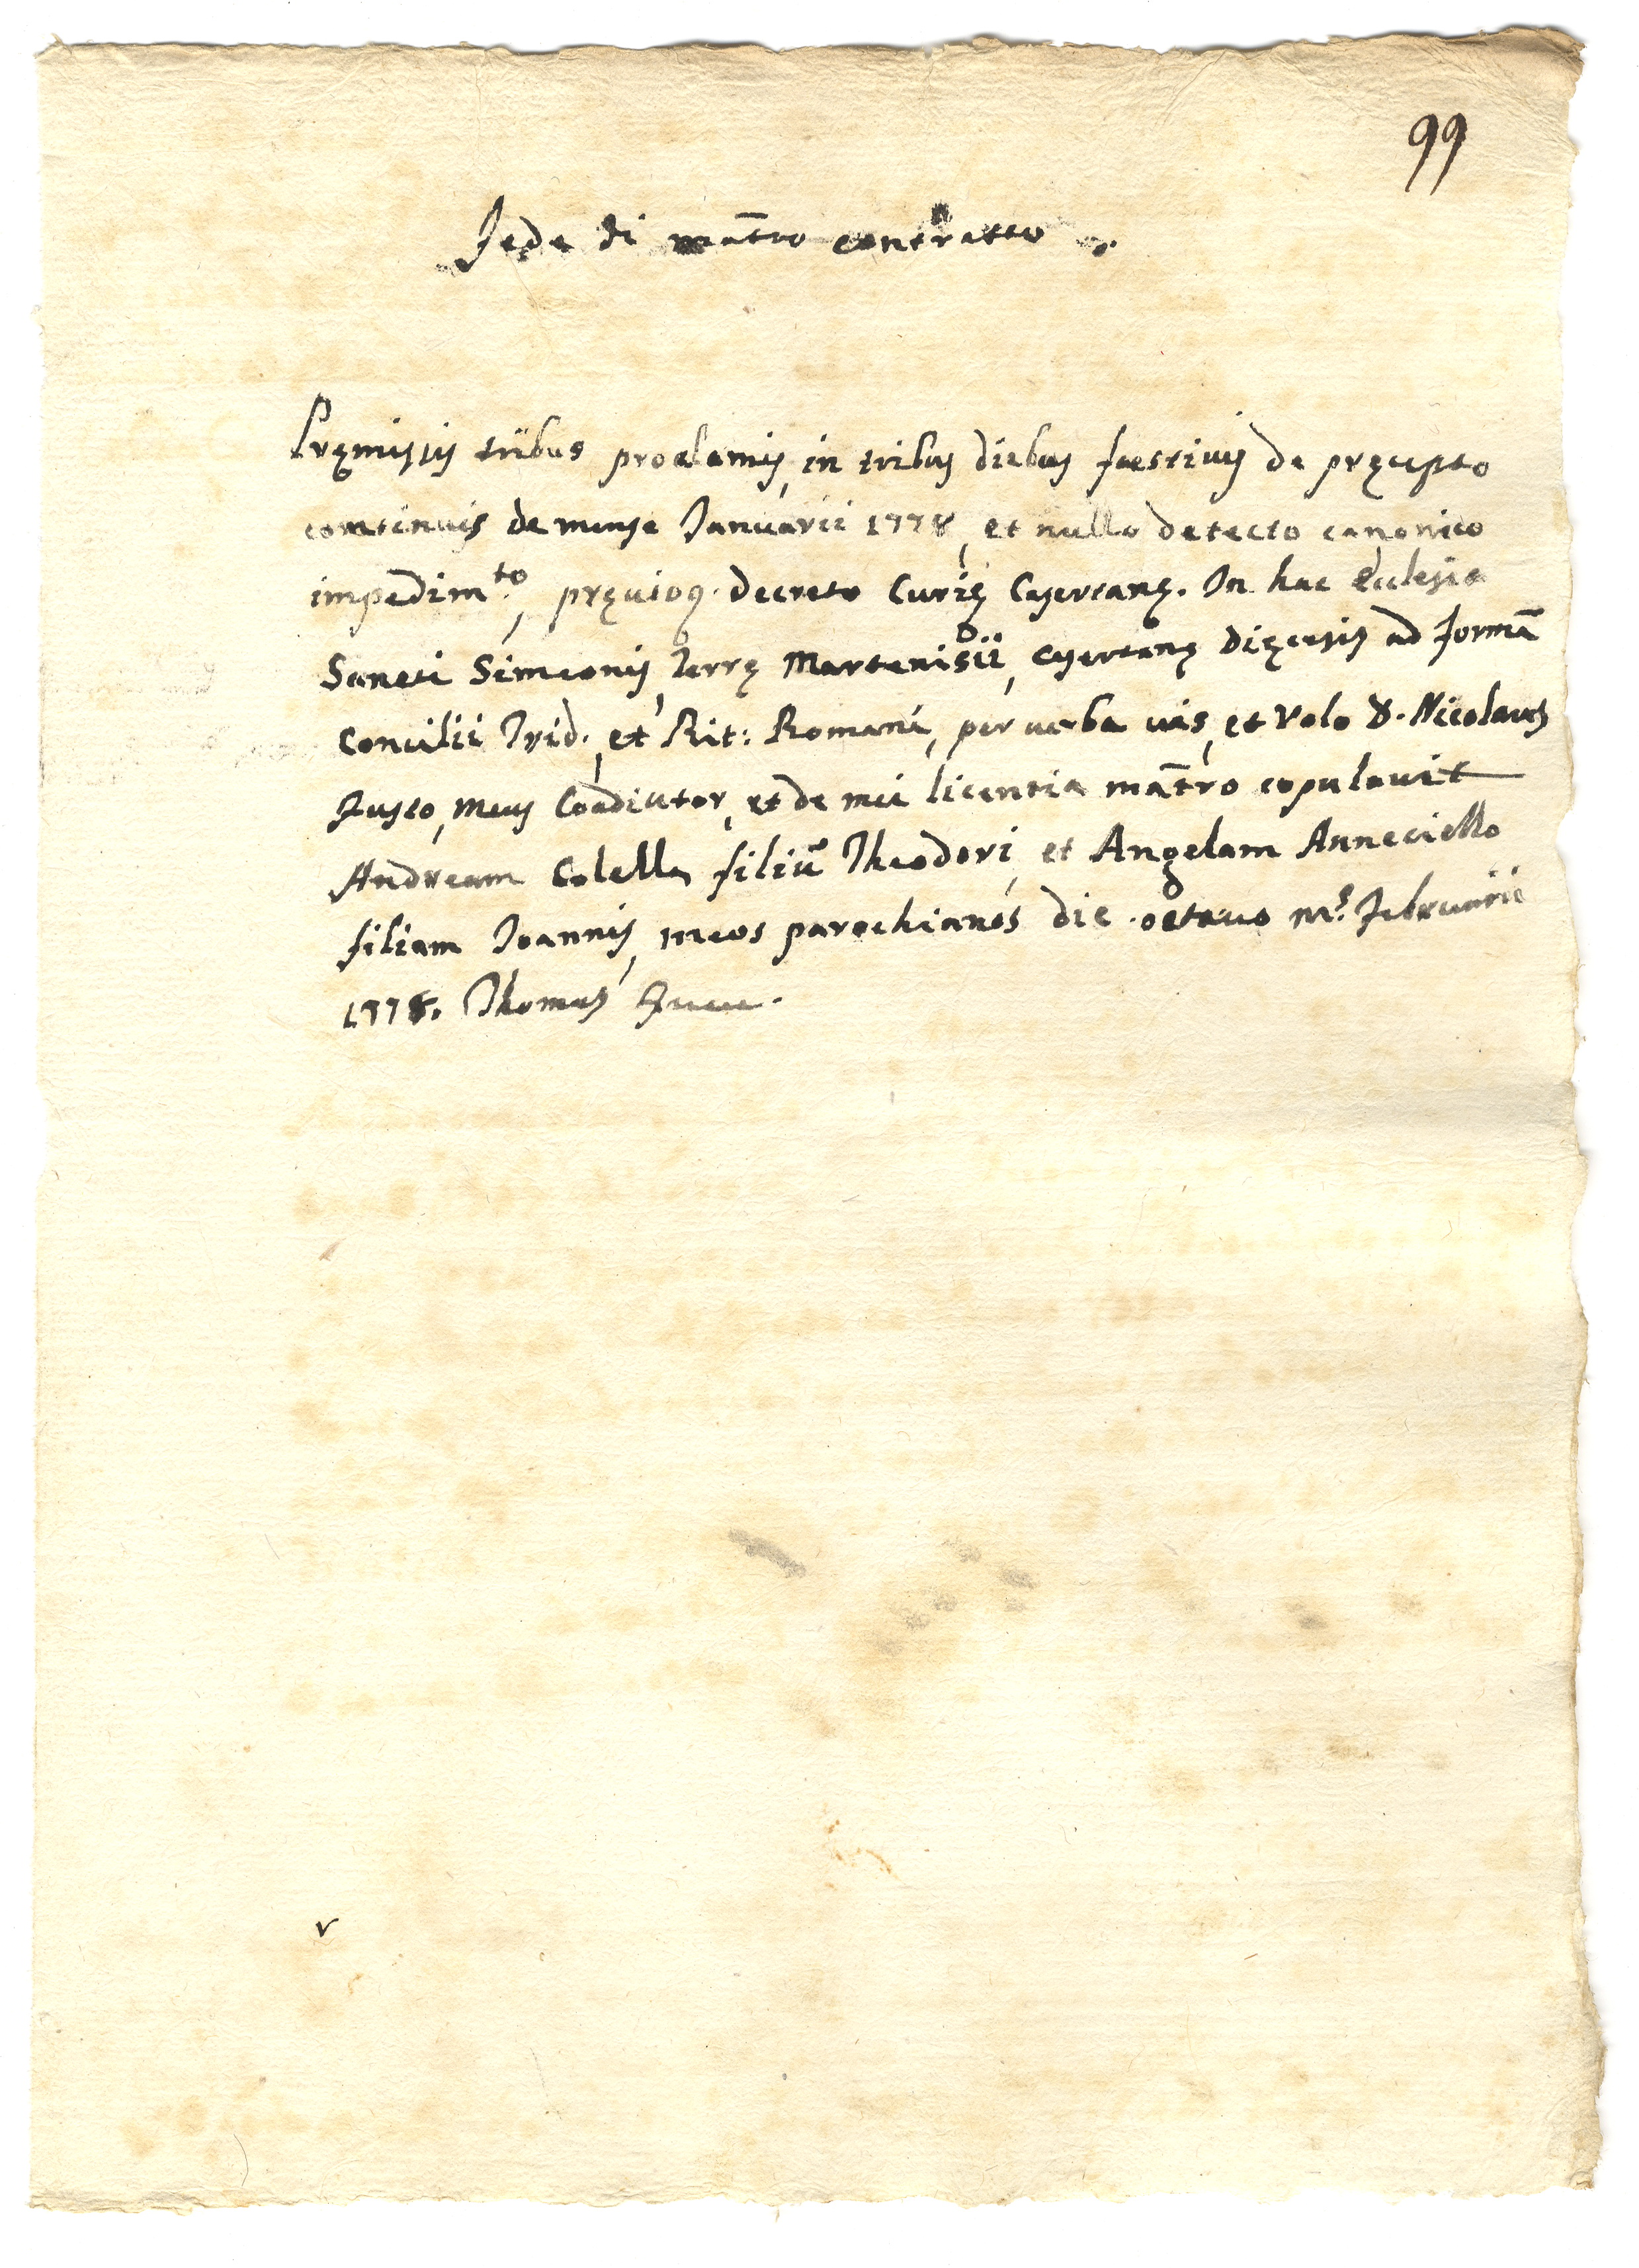 99
Fede di mat̄ro contratto.
Pręmissis tribus proclamis, in tribus diebus faestivis de pręcepto
continuis de mense Januarii 1778, et nullo detecto canonico
impedim.to, pręvioq. decreto Curię Casertanę. In hac Ecclesia
Sancti Simeonis, Terrę Martenisii, Casertanę Dięcesis ad formā
Concilii Trid., et Rit: Romani, per verba vis, et Volo D. Nicolaus
Fusco, meus Coadiutor, et de mei licentia mat̄ro copulavit
Andream Colella filiū Theodori, et Angelam Anneciello
filiam Joannis, meos parochianos die octavo m.s Februarii
1778. Thomas
v